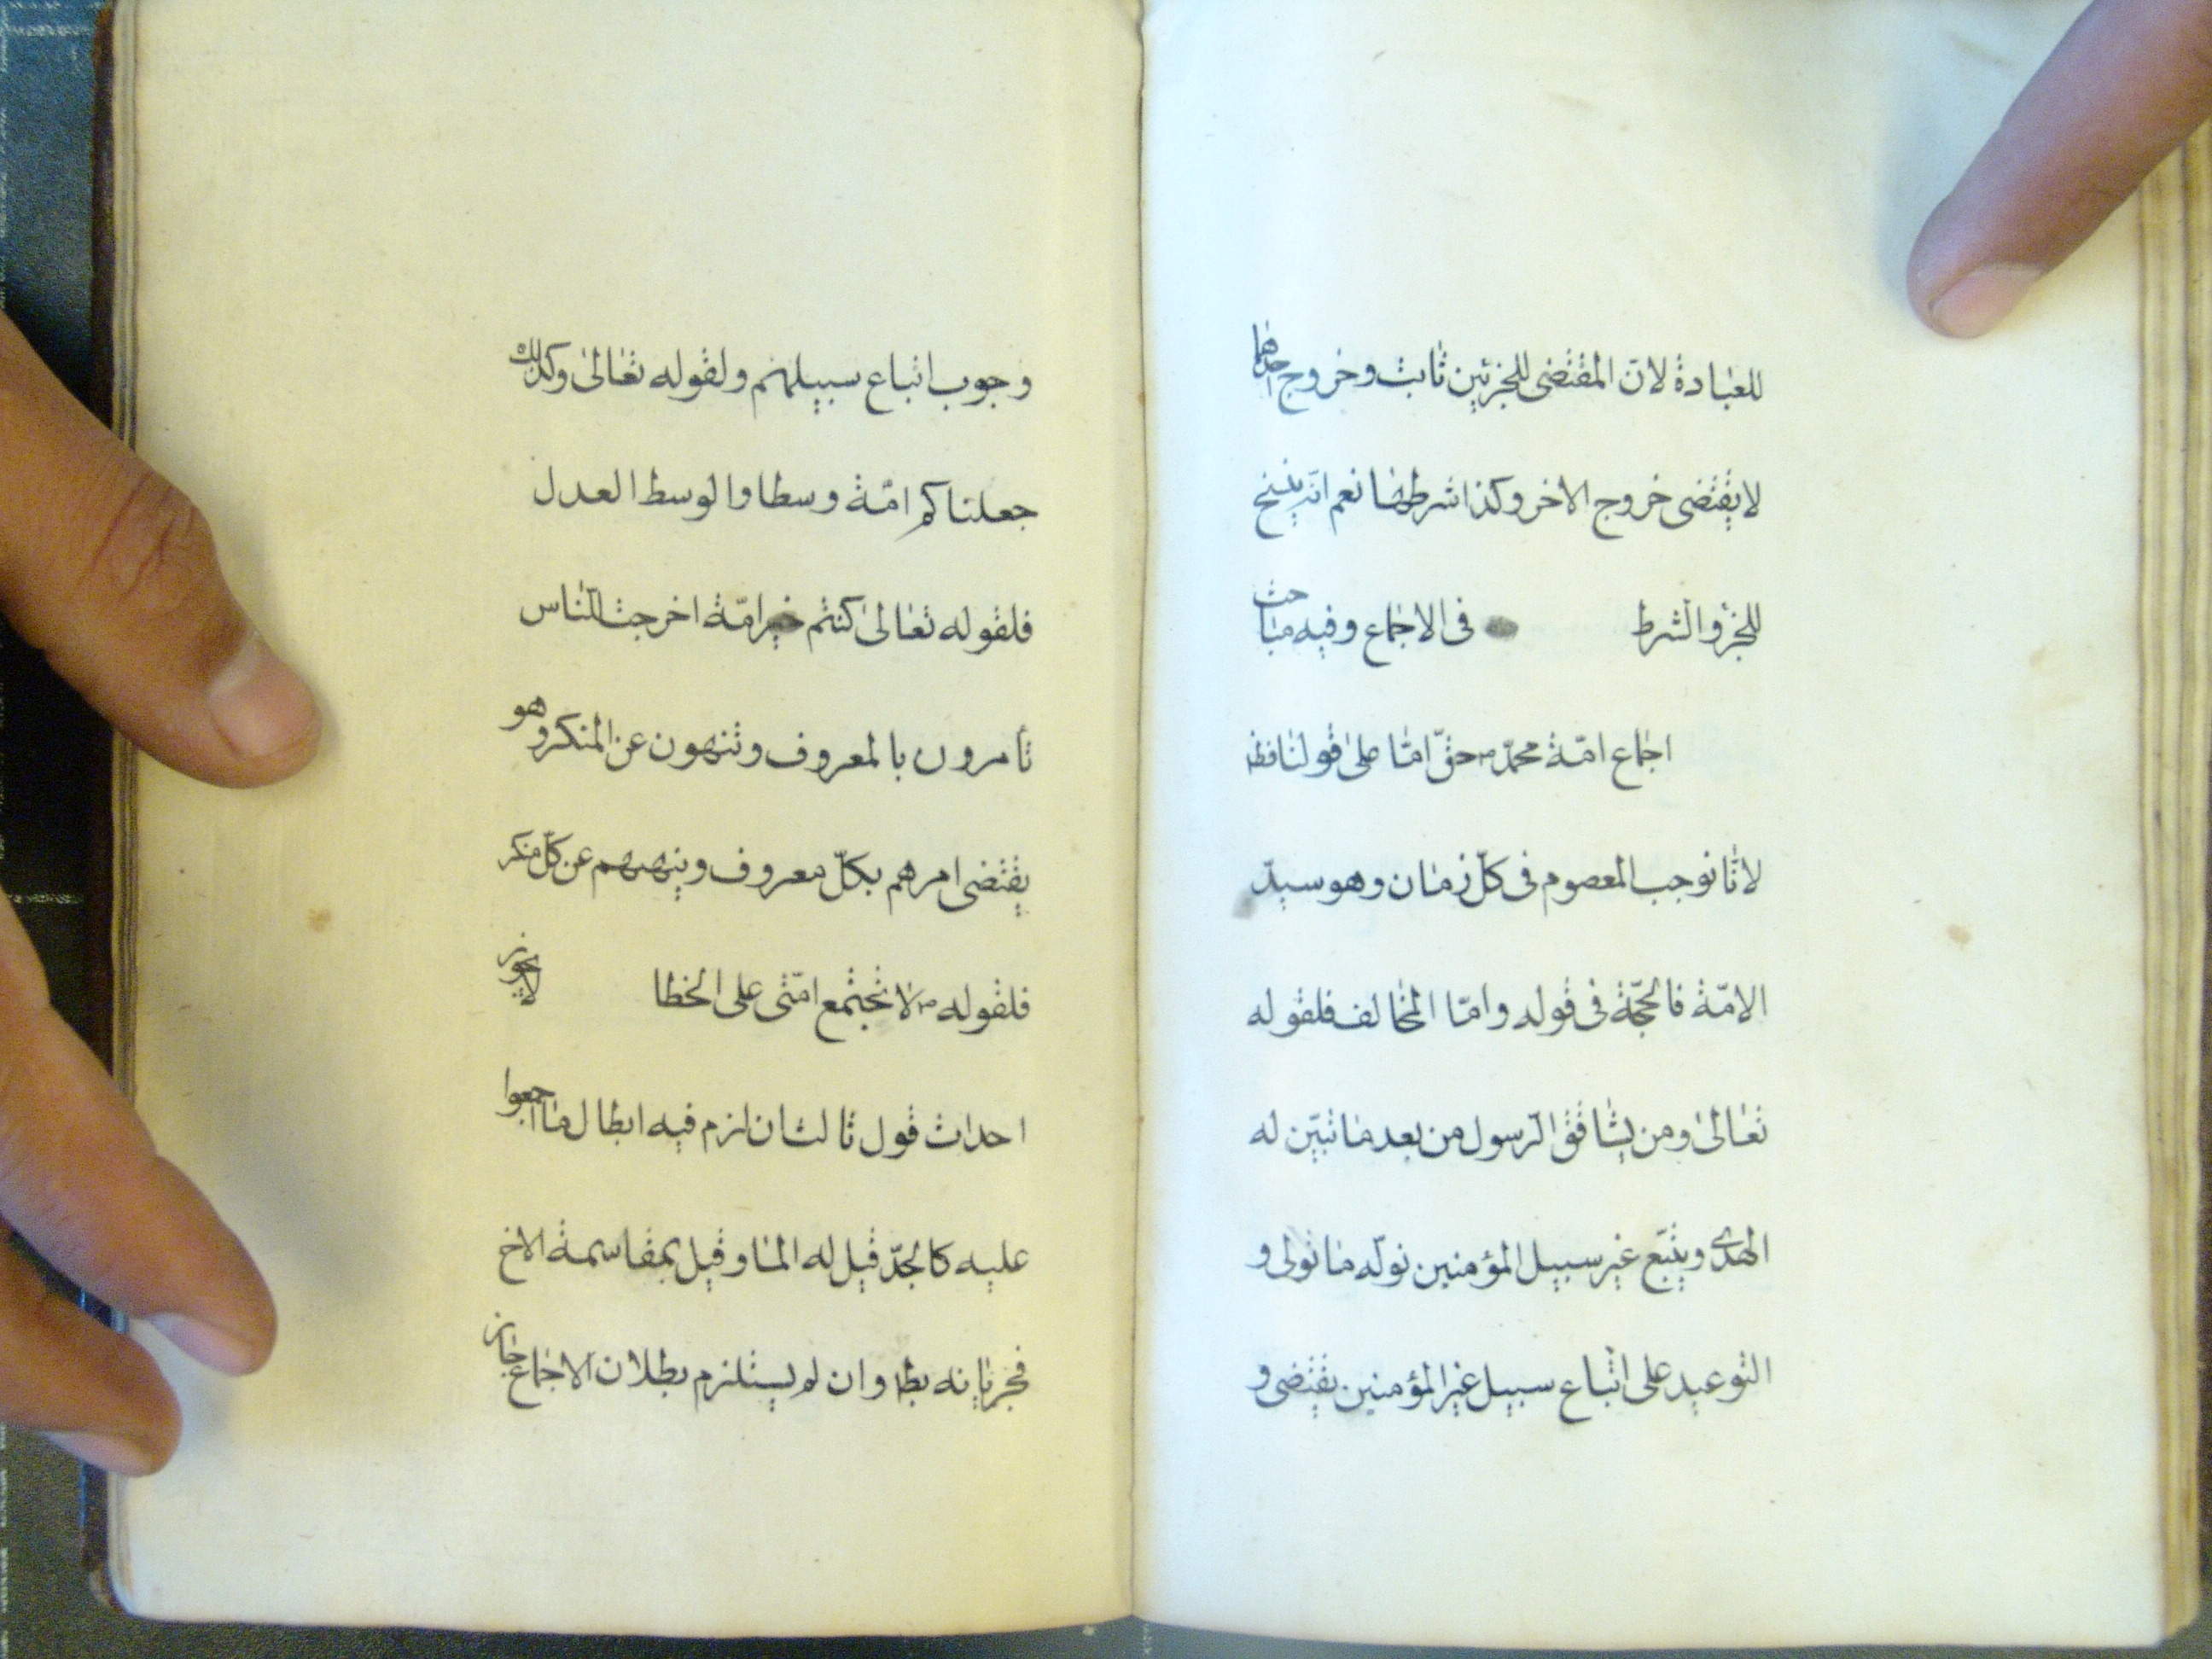 للعبادة لانّ المقتضى للجزئين ثابت وخروج احدهما
لا يقتضى خروج الاخر وكذا شرطها نعم انّه ينسخ
للجزؤ والشرط في الاجماع وفيه مباحث
اجماع امّة محمّد ص حقّ امّا على قولنا فظ
لانّا نوجب المعصوم في كلّ زمان وهو سيّد
الامّة فالحجّة في قوله وامّا المخالف فلقوله
تعالىٰ ومن يشاقق الرّسول من بعد ما تبيّن له
الهدى ويتّبع غير سبيل المؤمنين نولّه ما تولى و
التوعيد على اتّباع سبيل غير المؤمنين يقتضى و
وجوب اتباع سبيلهم ولقوله تعالىٰ وكذلك
جعلناكم امّة وسطا والوسط العدل
فلقوله تعالىٰ كنتم خير امّة اخرجت للنّاس
تأمرون بالمعروف وتنهون عن المنكر وهو
يقتضى امرهم بكلّ معروف وينهيهم عن كلّ منكر
فلقوله ص لا تجتمع امّتى على الخطا لا يجوز
احداث قول ثالث ان لزم فيه ابطال ما اجمعوا
عليه كالجدّ قيل له الما وقيل بمقاسمة الاخ
فحرمانه بط وان لم يستلزم بطلان الاجماع جاز